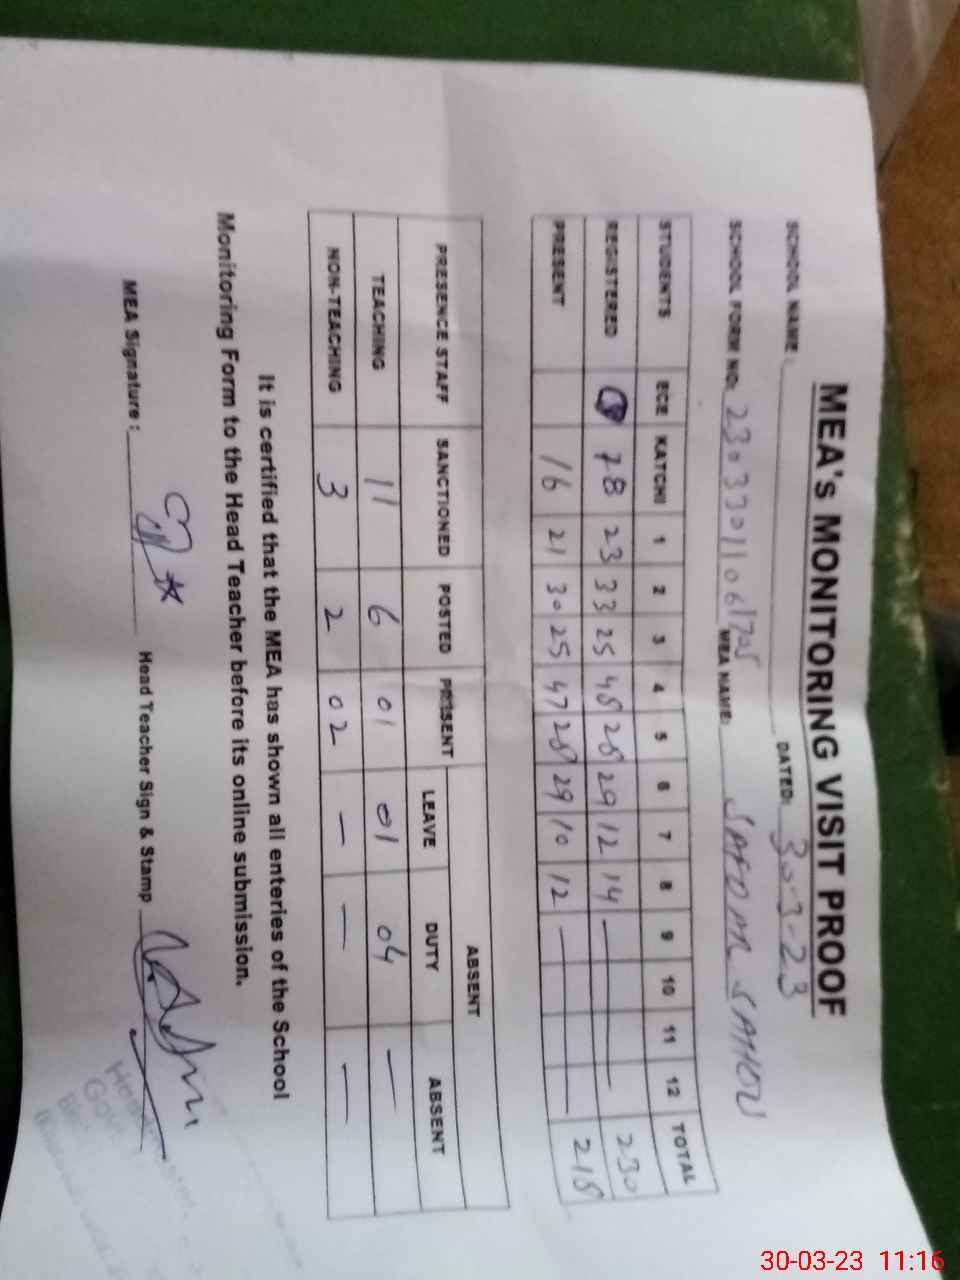 MEA's MONITORING VISIT PROOF
SCHOOL NAME: DATED: 30-3-23
SCHOOL FORM NO: MEA NAME: SAFDAR
STUDENTS ECE KATCHI 1 2 3 4 5 6 7 8 9 10 11 12 TOTAL
REGISTERED 23 33 25 48 28 29 12 14 — 230
PRESENT 16 21 30 25 47 28 29 10 12 — 218
PRESENCE STAFF SANCTIONED POSTED PRESENT ABSENT
LEAVE DUTY ABSENT
TEACHING 11 6 01 01 04 —
NON-TEACHING 3 2 02 — — —
It is certified that the MEA has shown all enteries of the School
Monitoring Form to the Head Teacher before its online submission.
MEA Signature: Head Teacher Sign & Stamp
30-03-23 11:16